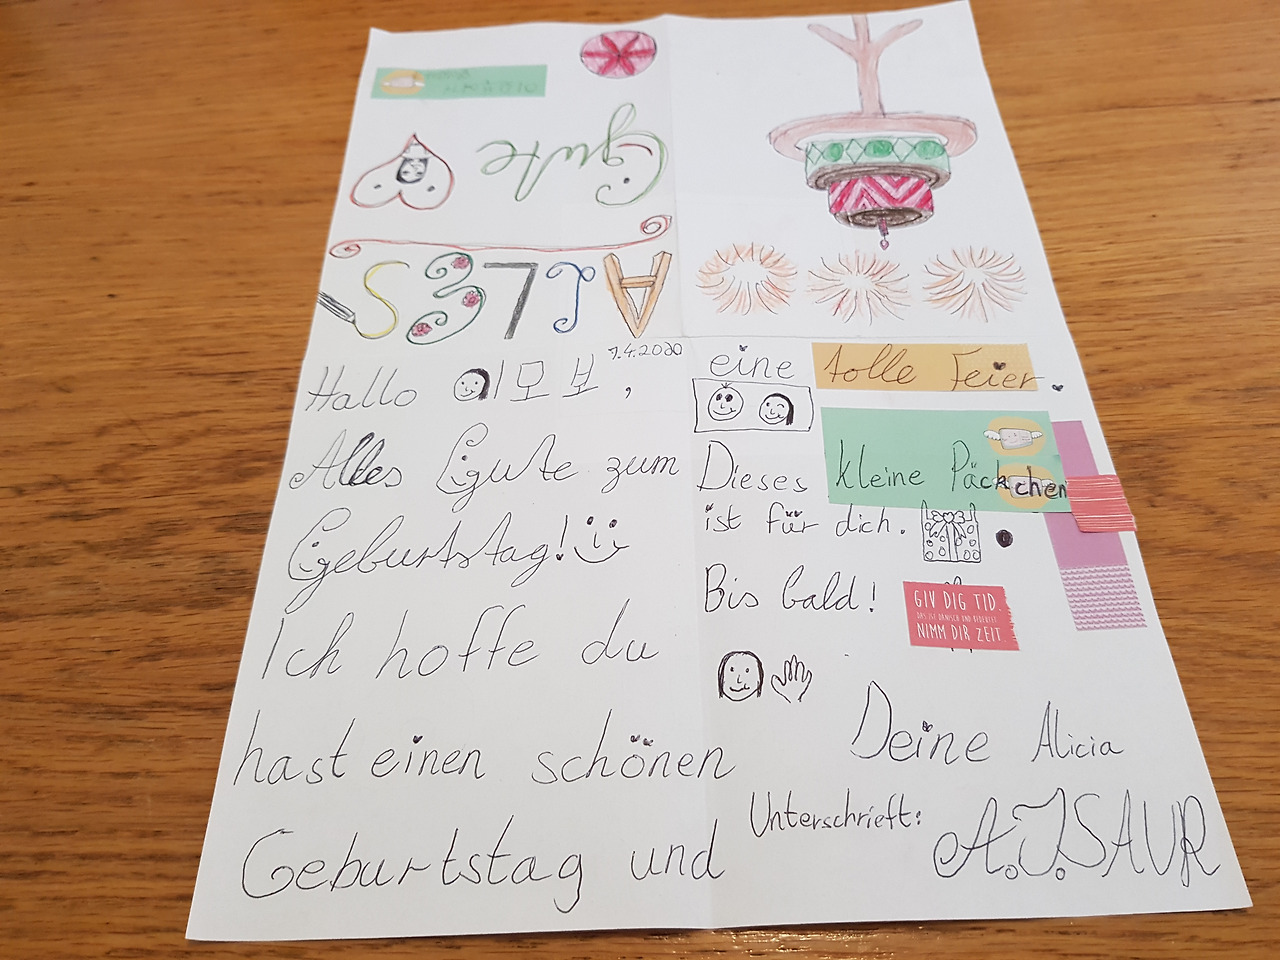 Gute
ALLES
7.4.2020
Hallo 이모보,
Alles Gute zum
Geburtstag!
Ich hoffe du
hast einen schönen
Geburtstag und
eine tolle Feier.
Dieses kleine Päckchen
ist für dich.
Bis bald!
GIV DIG TID.
DAS IST DÄNISCH UND BEDEUTET:
NIMM DIR ZEIT.
Deine Alicia
Unterschrieft:
A.J.SAUR